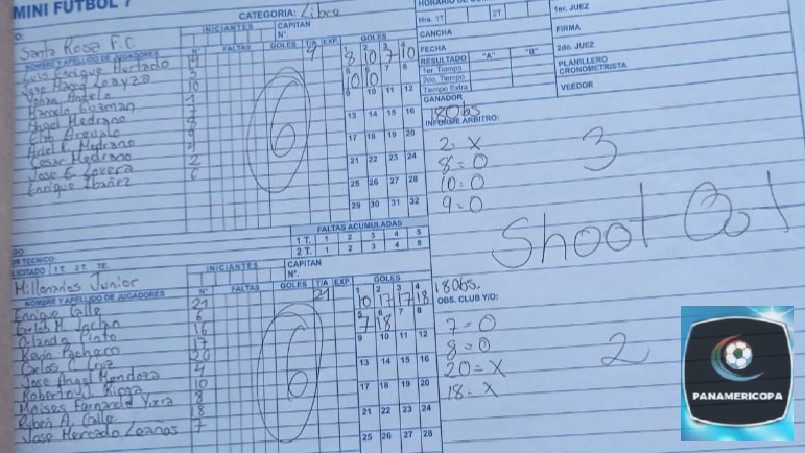 MINI FUTBOL 7
CATEGORIA: Libre
Santa Rosa F.C.
INICIANTES
CAPITAN
N°.
NOMBRE Y APELLIDO DE JUGADORES N° FALTAS GOLES T/A EXP. GOLES
9
1 2 3 4
8 10 7 10
5 6 7 8
10 10
9 10 11 12
13 14 15 16
17 18 19 20
21 22 23 24
25 26 27 28
29 30 31 32
Luis Enrique Hurtado
Jose Marco Loayza 3
10
Marcelo Guzman 1
Angel Medrano 7
Arevalo 8
Ariel R. Medrano 9
Cesar Medrano 4
Jose E. 2
Enrique Ibañez 6
6
FALTAS ACUMULADAS
1 T. 1 2 3 4 5
2 T. 1 2 3 4 5
Hrs. 1T 2T
CANCHA
FECHA
RESULTADO "A" "B"
1er. Tiempo
2do. Tiempo
Tiempo Extra
GANADOR
1er. JUEZ
FIRMA
2do. JUEZ
PLANILLERO
CRONOMETRISTA
VEEDOR
INFORME ARBITRO:
2 X
8 = 0
10 = 0
9 = 0
3
Shoot Out
1 T. 2 T. TE.
Millonarios Junior
INICIANTES
CAPITAN
N°.
NOMBRE Y APELLIDO DE JUGADORES N° FALTAS GOLES T/A EXP GOLES
21
1 2 3 4
10 17 17 18
5 6 7 8
7 18
9 10 11 12
13 14 15 16
17 18 19 20
21 22 23 24
25 26 27 28
Enrique Calle 21
Carlos M. 6
Orlando Pinto 16
Kevin Pacheco 17
Carlos C. Cruz 20
Jose Angel Mendoza 4
Roberto 10
Moises Fernando 8
Ruben A. Calle 18
Jose Mercado 7
6
OBS. CLUB Y/O:
7 = 0
8 = 0
20 = X
18 = X
2
PANAMERICOPA